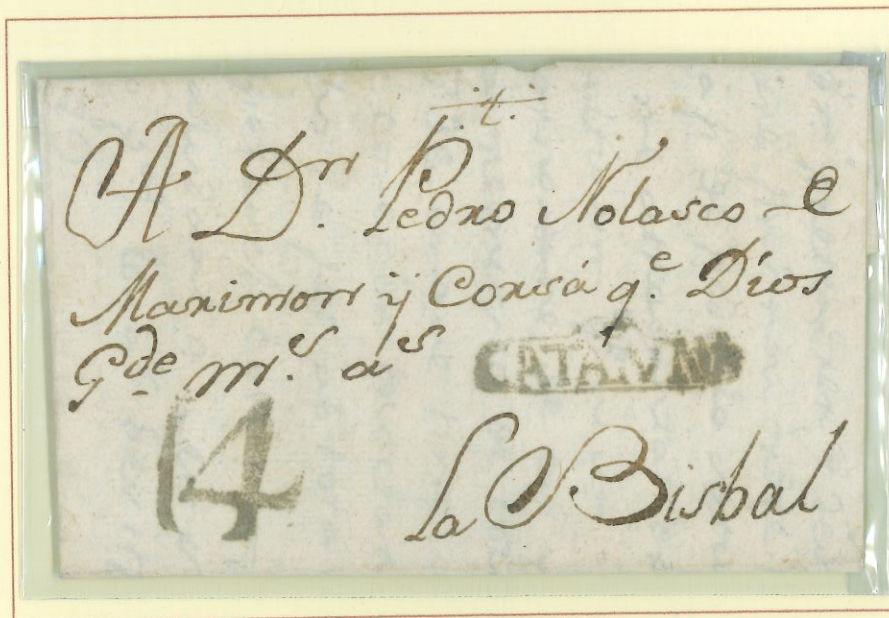 t.
A Dn. Pedro Nolasco e
Marimon y Corsá qe. Dios
Gde ms. as
CATALUÑA
La Bisbal
4